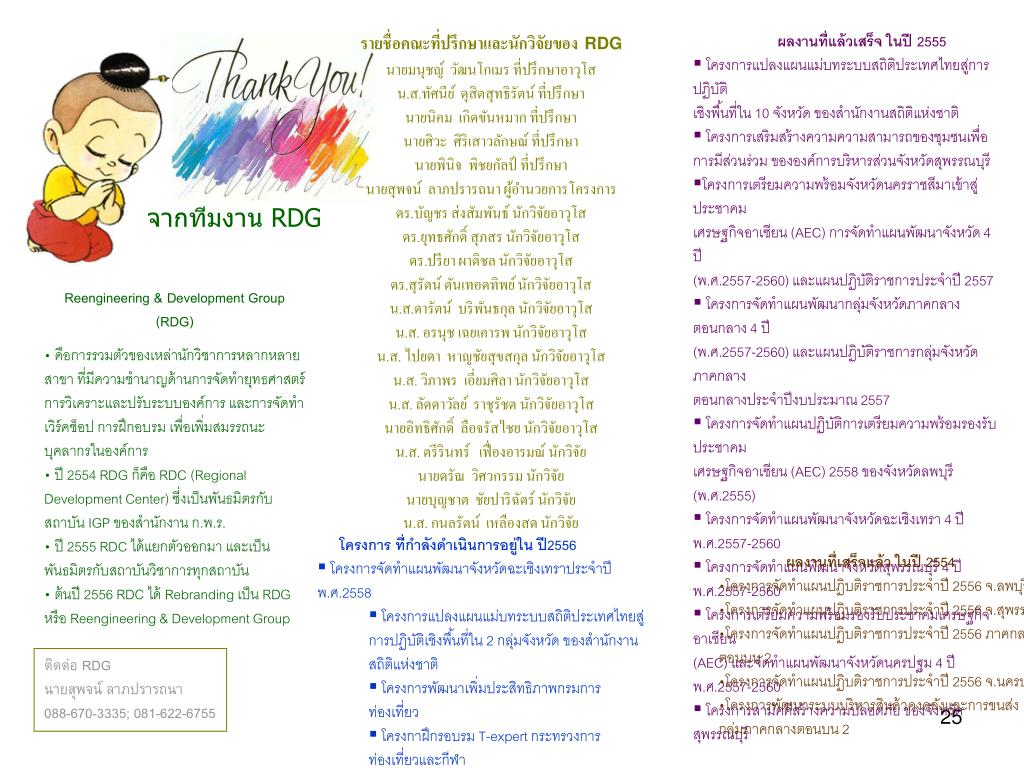 Thank You!
จากทีมงาน RDG
Reengineering & Development Group
(RDG)
• คือการรวมตัวของเหล่านักวิชาการหลากหลาย
สาขา ที่มีความชำนาญด้านการจัดทำยุทธศาสตร์
การวิเคราะและปรับระบบองค์การ และการจัดทำ
เวิร์คช็อป การฝึกอบรม เพื่อเพิ่มสมรรถนะ
บุคลากรในองค์การ
• ปี 2554 RDG ก็คือ RDC (Regional
Development Center) ซึ่งเป็นพันธมิตรกับ
สถาบัน IGP ของสำนักงาน ก.พ.ร.
• ปี 2555 RDC ได้แยกตัวออกมา และเป็น
พันธมิตรกับสถาบันวิชาการทุกสถาบัน
• ต้นปี 2556 RDC ได้ Rebranding เป็น RDG
หรือ Reengineering & Development Group
ติดต่อ RDG
นายสุพจน์ ลาภปรารถนา
088-670-3335; 081-622-6755
รายชื่อคณะที่ปรึกษาและนักวิจัยของ RDG
นายมนุชญ์ วัฒนโกเมร ที่ปรึกษาอาวุโส
น.ส.ทัศนีย์ ดุสิตสุทธิรัตน์ ที่ปรึกษา
นายนิคม เกิดขันหมาก ที่ปรึกษา
นายศิวะ ศิริเสาวลักษณ์ ที่ปรึกษา
นายพินิจ พิชยกัลป์ ที่ปรึกษา
นายสุพจน์ ลาภปรารถนา ผู้อำนวยการโครงการ
ดร.บัญชร ส่งสัมพันธ์ นักวิจัยอาวุโส
ดร.ยุทธศักดิ์ สุภสร นักวิจัยอาวุโส
ดร.ปรียา ผาติชล นักวิจัยอาวุโส
ดร.สุรัตน์ ตันเทอดทิพย์ นักวิจัยอาวุโส
น.ส.ดารัตน์ บริพันธกุล นักวิจัยอาวุโส
น.ส. อรนุช เฉยเคารพ นักวิจัยอาวุโส
น.ส. ไปยดา หาญชัยสุขสกุล นักวิจัยอาวุโส
น.ส. วิภาพร เอี่ยมศิลา นักวิจัยอาวุโส
น.ส. ลัดดาวัลย์ ราชุรัชต นักวิจัยอาวุโส
นายอิทธิศักดิ์ ลือจรัสไชย นักวิจัยอาวุโส
น.ส. ตรีรินทร์ เฟื่องอารมณ์ นักวิจัย
นายดรัณ วิศวกรรม นักวิจัย
นายบุญชาต ชัยปาริฉัตร์ นักวิจัย
น.ส. กนลรัตน์ เหลืองสด นักวิจัย
โครงการ ที่กำลังดำเนินการอยู่ใน ปี2556
▪ โครงการจัดทำแผนพัฒนาจังหวัดฉะเชิงเทราประจำปี
พ.ศ.2558
▪ โครงการแปลงแผนแม่บทระบบสถิติประเทศไทยสู่
การปฏิบัติเชิงพื้นที่ใน 2 กลุ่มจังหวัด ของสำนักงาน
สถิติแห่งชาติ
▪ โครงการพัฒนาเพิ่มประสิทธิภาพกรมการ
ท่องเที่ยว
▪ โครงกาฝึกรอบรม T-expert กระทรวงการ
ท่องเที่ยวและกีฬา
ผลงานที่แล้วเสร็จ ในปี 2555
▪ โครงการแปลงแผนแม่บทระบบสถิติประเทศไทยสู่การ
ปฏิบัติ
เชิงพื้นที่ใน 10 จังหวัด ของสำนักงานสถิติแห่งชาติ
▪ โครงการเสริมสร้างความความสามารถของชุมชนเพื่อ
การมีส่วนร่วม ขององค์การบริหารส่วนจังหวัดสุพรรณบุรี
▪โครงการเตรียมความพร้อมจังหวัดนครราชสีมาเข้าสู่
ประชาคม
เศรษฐกิจอาเซียน (AEC) การจัดทำแผนพัฒนาจังหวัด 4
ปี
(พ.ศ.2557-2560) และแผนปฏิบัติราชการประจำปี 2557
▪ โครงการจัดทำแผนพัฒนากลุ่มจังหวัดภาคกลาง
ตอนกลาง 4 ปี
(พ.ศ.2557-2560) และแผนปฏิบัติราชการกลุ่มจังหวัด
ภาคกลาง
ตอนกลางประจำปีงบประมาณ 2557
▪ โครงการจัดทำแผนปฏิบัติการเตรียมความพร้อมรองรับ
ประชาคม
เศรษฐกิจอาเซียน (AEC) 2558 ของจังหวัดลพบุรี
(พ.ศ.2555)
▪ โครงการจัดทำแผนพัฒนาจังหวัดฉะเชิงเทรา 4 ปี
พ.ศ.2557-2560
▪ โครงการจัดทำแผนพัฒนาจังหวัดสุพรรณบุรี 4 ปี
พ.ศ.2557-2560
▪ โครงการเตรียมความพร้อมรองรับประชาคมเศรษฐกิจ
อาเซียน
(AEC) และจัดทำแผนพัฒนาจังหวัดนครปฐม 4 ปี
พ.ศ.2557-2560
▪ โครงการสามัคคีสร้างความปลอดภัย ของจังหวัด
สุพรรณบุรี
ผลงานที่เสร็จแล้ว ในปี 2554
•โครงการจัดทำแผนปฏิบัติราชการประจำปี 2556 จ.ลพบุ
•โครงการจัดทำแผนปฏิบัติราชการประจำปี 2556 จ.สุพรร
•โครงการจัดทำแผนปฏิบัติราชการประจำปี 2556 ภาคกล
ตอนบน 2
•โครงการจัดทำแผนปฏิบัติราชการประจำปี 2556 จ.นครป
•โครงการพัฒนาระบบบริหารสินค้าคงคลังและการขนส่ง
กลุ่มภาคกลางตอนบน 2
25